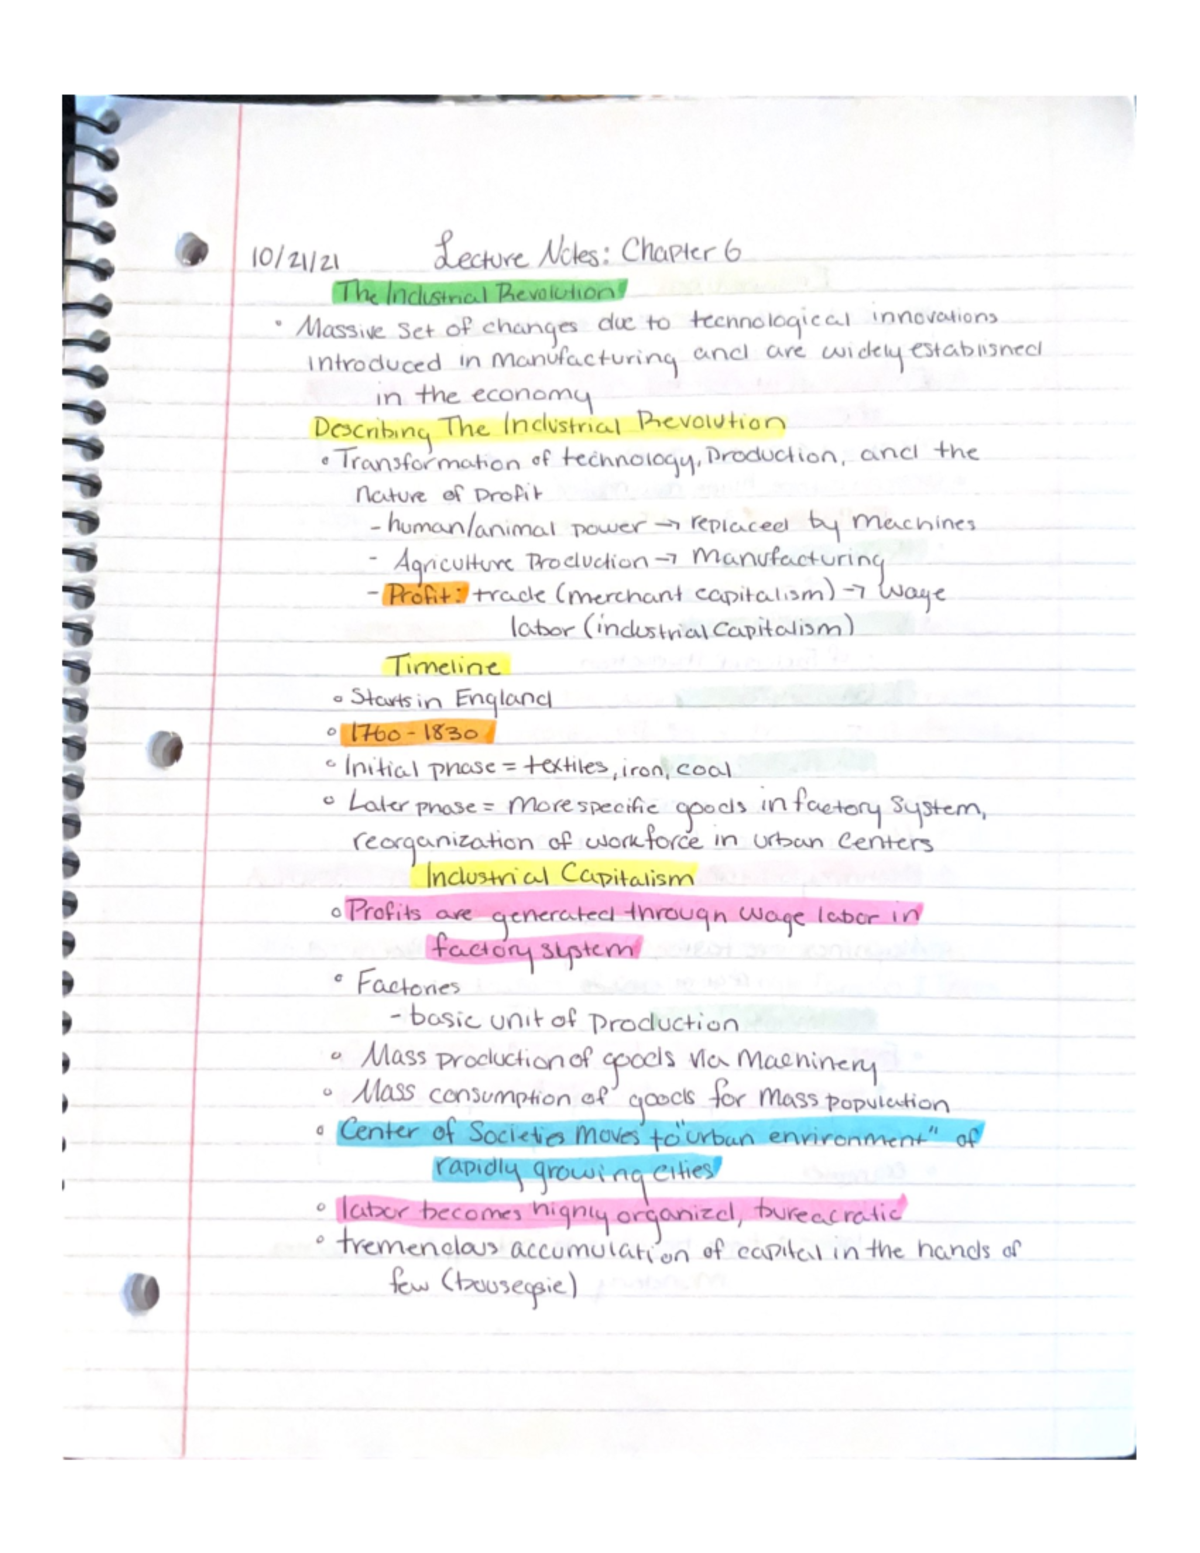 10/21/21 Lecture Notes: Chapter 6
The Industrial Revolution
• Massive set of changes due to technological innovations
introduced in manufacturing and are widely established
in the economy
Describing The Industrial Revolution
• Transformation of technology, production, and the
nature of profit
- human/animal power → replaced by machines
- Agriculture Production → manufacturing
- Profit: trade (merchant capitalism) → wage
labor (industrial capitalism)
Timeline
• Starts in England
• 1760 - 1830
• Initial phase = textiles, iron, coal
• Later phase = more specific goods in factory system,
reorganization of workforce in urban centers
Industrial Capitalism
• Profits are generated through wage labor in
factory system
• Factories
- basic unit of production
• Mass production of goods via machinery
• Mass consumption of goods for mass population
• Center of Societies moves to "urban environment" of
rapidly growing cities
• labor becomes highly organizd, bureacratic
• tremendous accumulation of capital in the hands of
few (bousegsie)